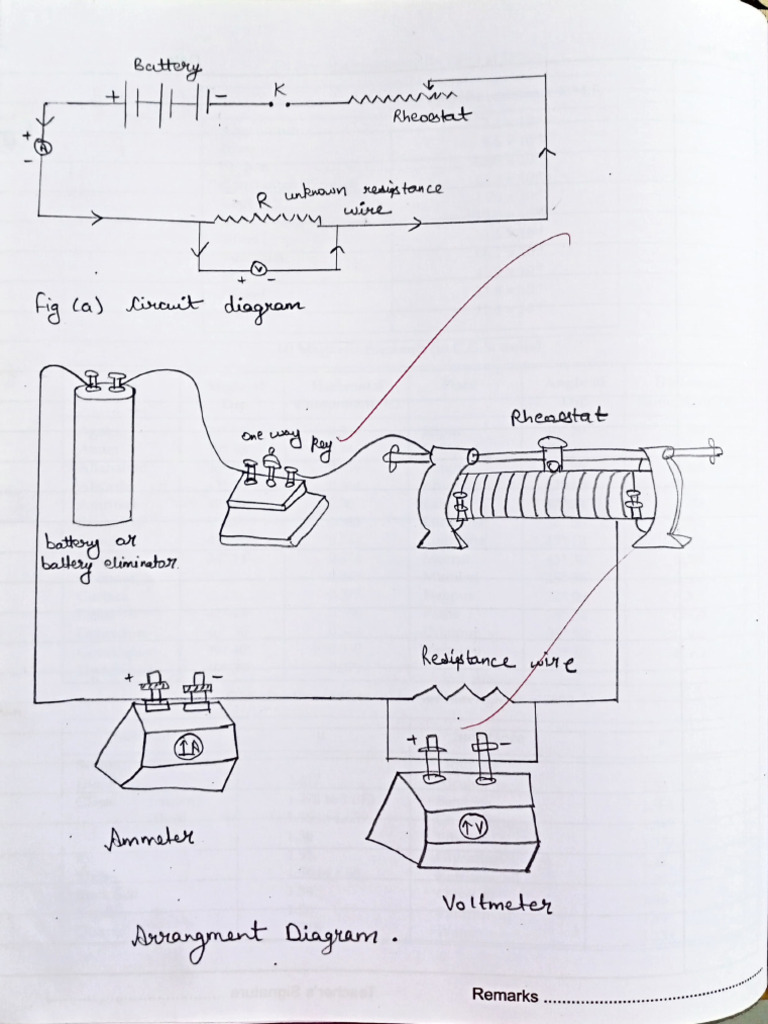 Battery
+ - K
Rheostat
+
A
-
R unknown resistance
wire
V
+ -
fig (a) Circuit diagram
Rheostat
one way key
battery or
battery eliminator.
Resistance wire
+ -
A
+ -
V
Ammeter
Voltmeter
Arrangment Diagram.
Remarks